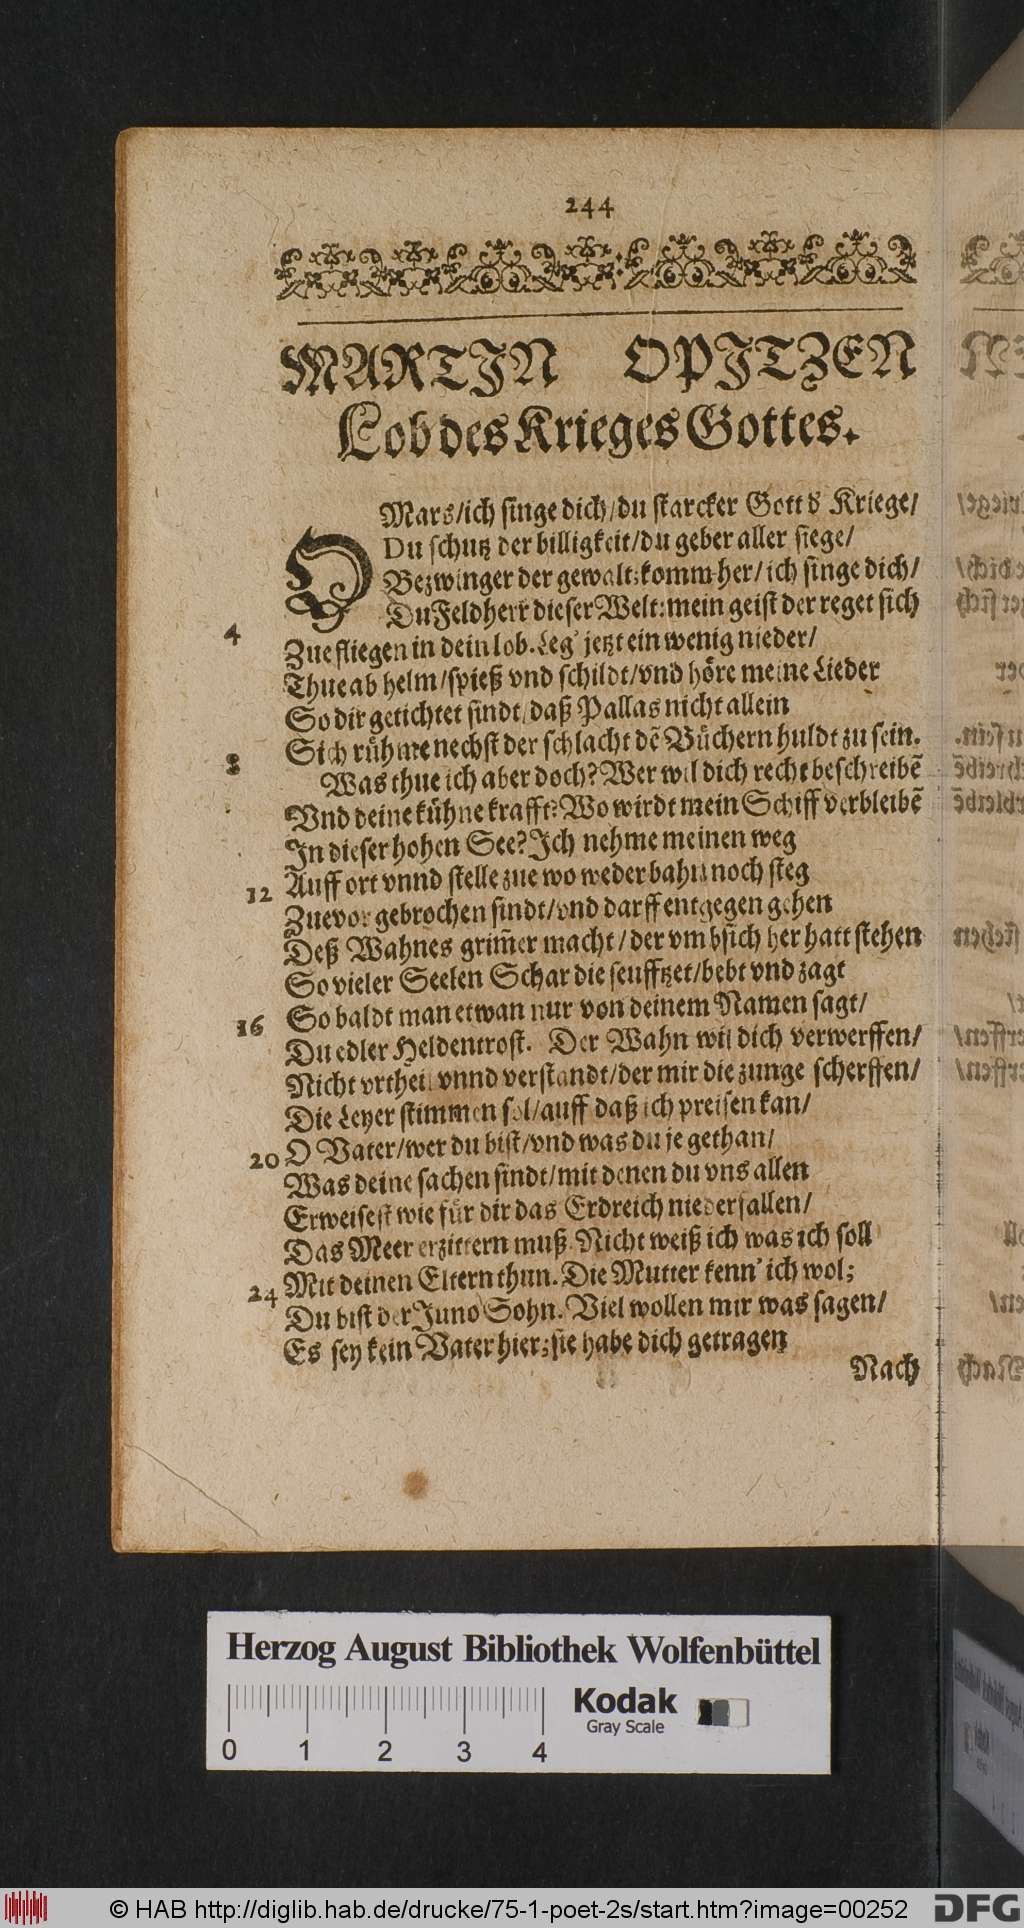 244
MARTIN OPITZEN
Lob des Krieges Gottes.
O Mars/ich singe dich/du starcker Gott d Kriege/
Du schutz der billigkeit/du geber aller siege/
Bezwinger der gewalt:komm her/ich singe dich/
Du Feldherr dieser Welt:mein geist der reget sich
4
Zue fliegen in dein lob. Leg' jetzt ein wenig nieder/
Thue ab helm/spieß vnd schildt/vnd höre meine Lieder
So dir getichtet sindt/daß Pallas nicht allein
Sich rühme nechst der schlacht dē Büchern huldt zu sein.
8
Was thue ich aber doch? Wer wil dich recht beschreibē
Vnd deine kühne krafft? Wo wirdt mein Schiff verbleibē
In dieser hohen See? Ich nehme meinen weg
12 Auff ort vnnd stelle zue wo weder bahn noch steg
Zuevor gebrochen sindt/vnd darff entgegen gehen
Deß Wahnes grim̃er macht/der vmb sich her hatt stehen
So vieler Seelen Schar die seufftzet/bebt vnd zagt
16 So baldt man etwan nur von deinem Namen sagt/
Du edler Heldentrost. Der Wahn wil dich verwerffen/
Nicht vrtheil vnnd verstandt/der mir die zunge scherffen/
Die Leyer stimmen sol/auff daß ich preisen kan/
20 O Vater/wer du bist/vnd was du je gethan/
Was deine sachen sindt/mit denen du vns allen
Erweisest wie für dir das Erdreich niederfallen/
Das Meer erzittern muß. Nicht weiß ich was ich soll
24 Mit deinen Eltern thun. Die Mutter kenn' ich wol;
Du bist der Juno Sohn. Viel wollen mir was sagen/
Es sey kein Vater hier; sie habe dich getragen
Nach
Herzog August Bibliothek Wolfenbüttel
Kodak
Gray Scale
0 1 2 3 4
© HAB http://diglib.hab.de/drucke/75-1-poet-2s/start.htm?image=00252
DFG